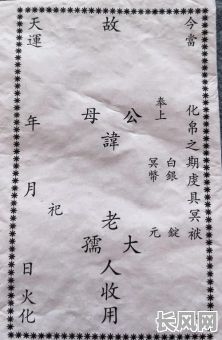 今當
化帛之期虔具冥袱
奉上
白銀 錠
冥幣 元
故
公
母
諱
老大
孺
人收用
祀
天運 年 月 日火化
长风网